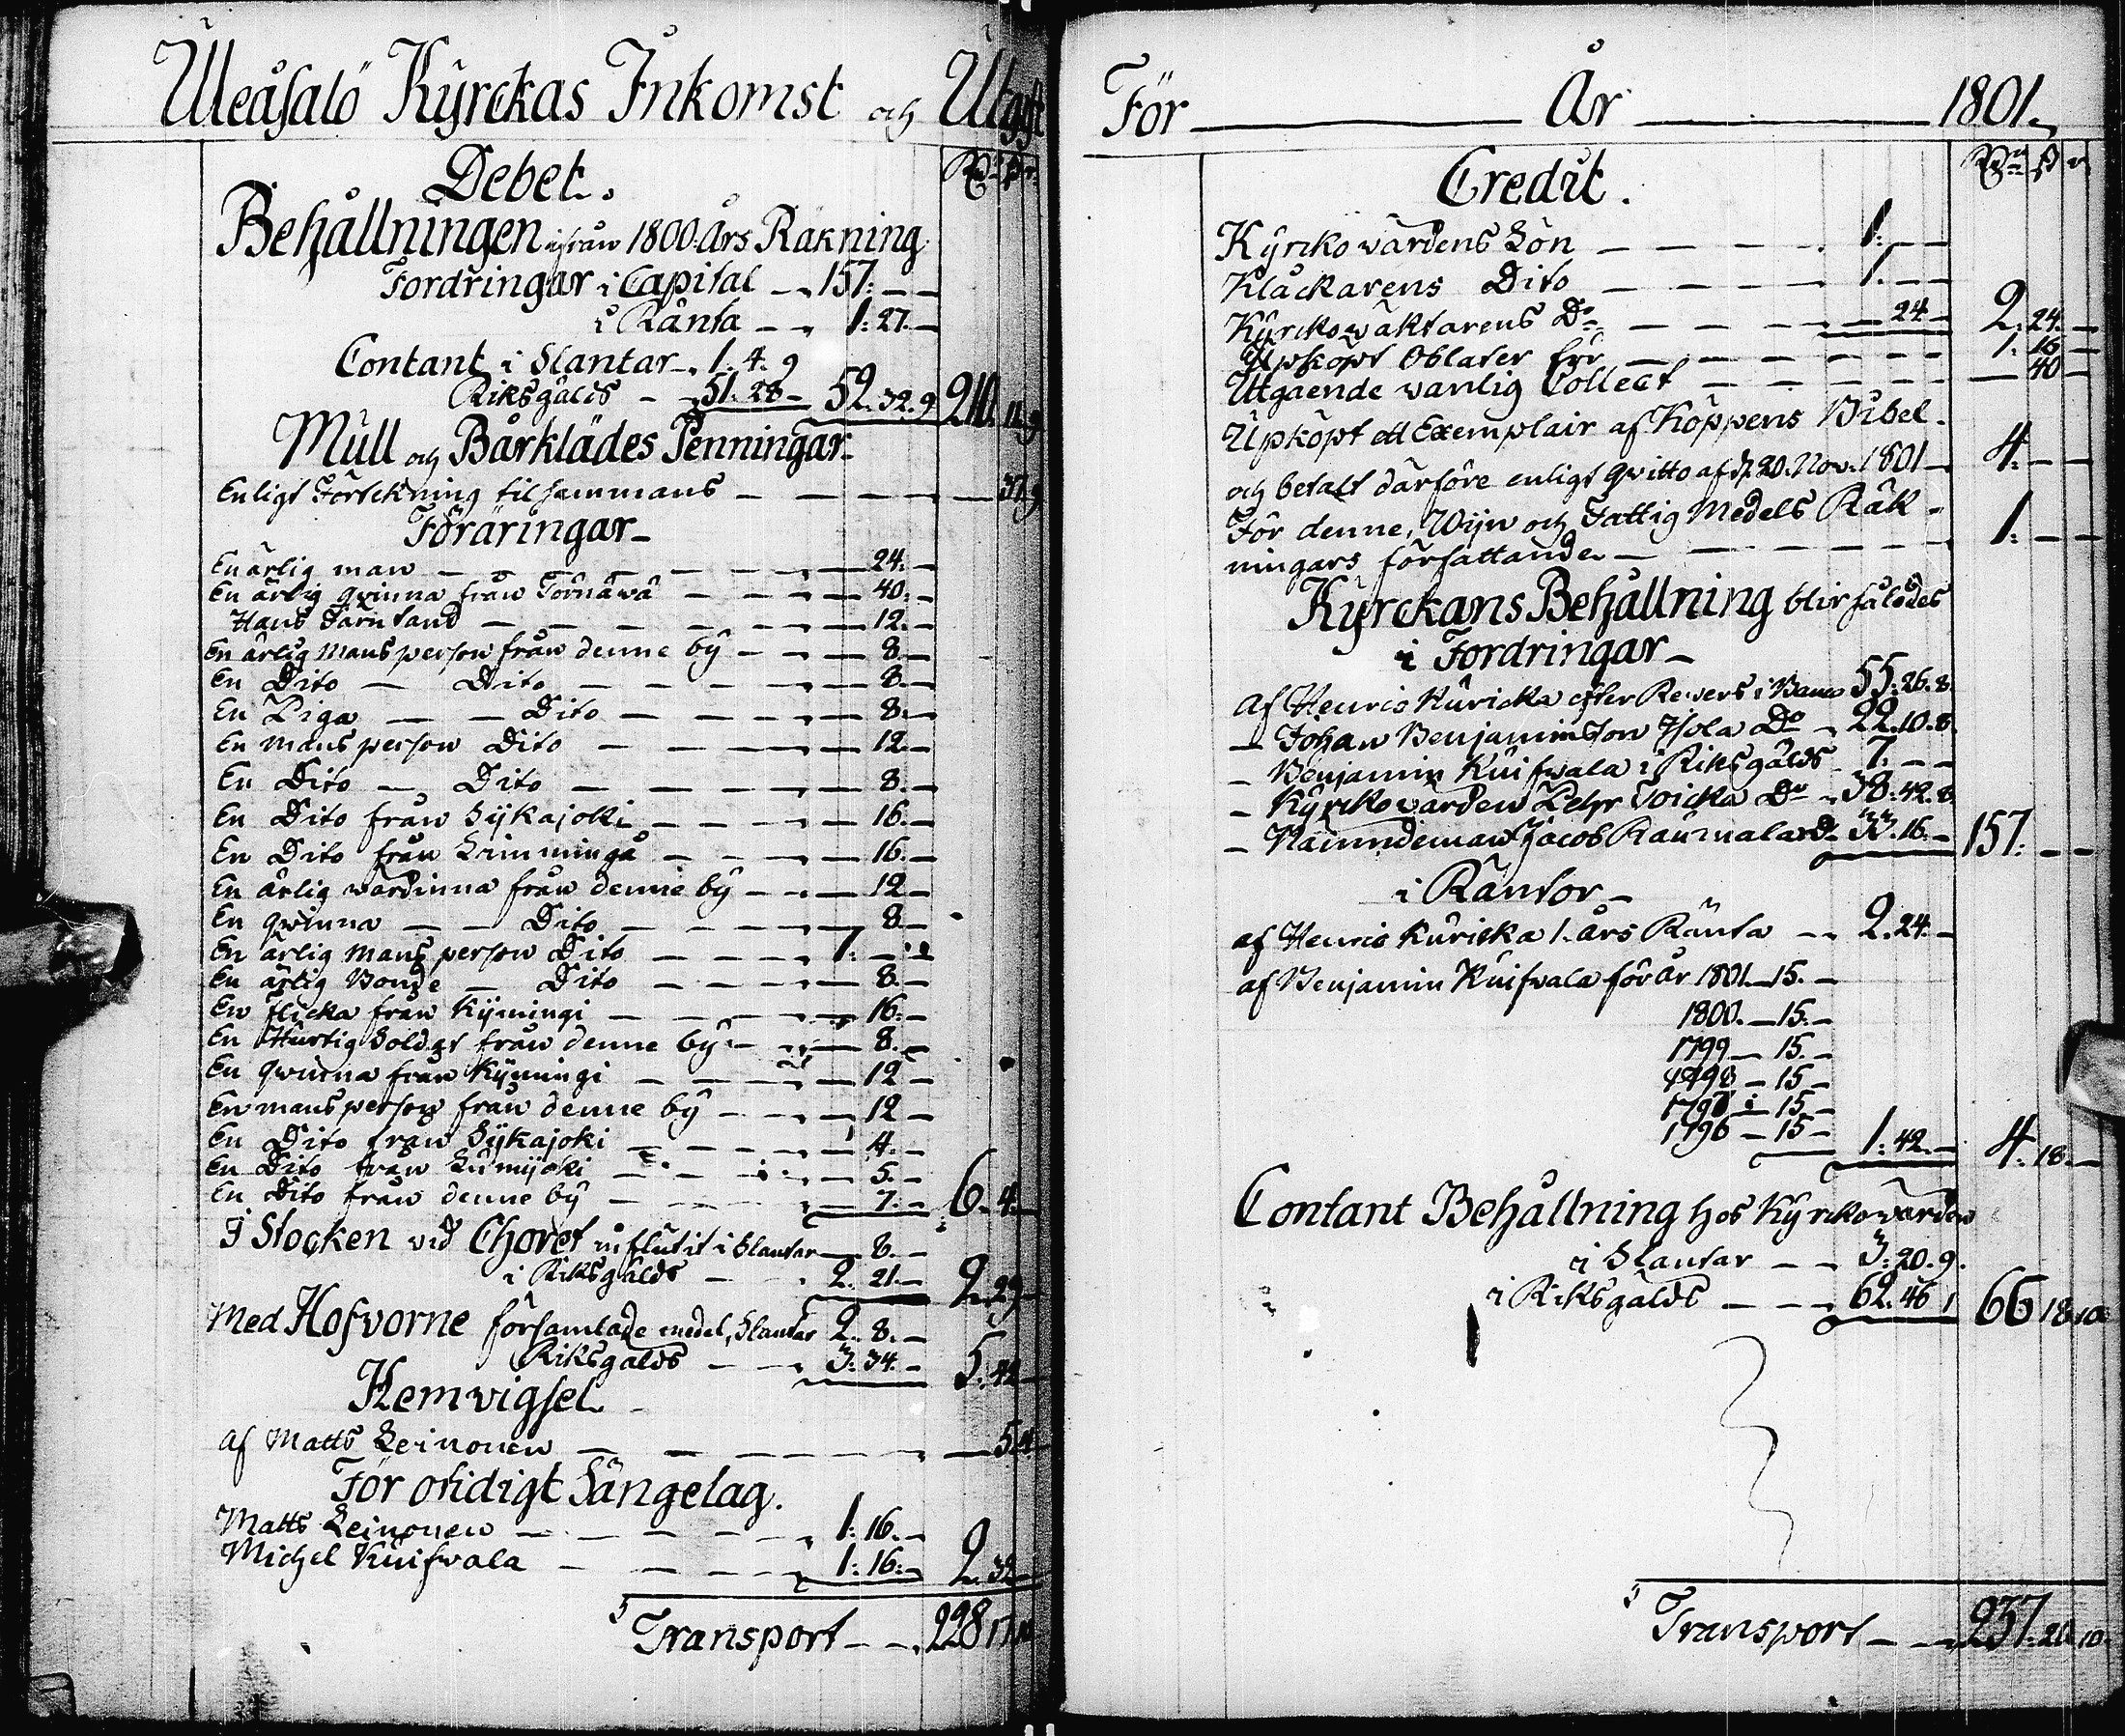 Uleåsalo Kyrckas Inkomst och Utgift
Debet.
Rd. s. r.
Behållningen ifrån 1800. Års Räkning
Fordringar i Capital — 157. — —
i Ränta — 1. 27. —
Contant i Slantar — 1. 4. 9
Riksgälds — 51. 28 — 52. 32. 9 210. 11. 9
Mull och Bårklädes Penningar
Enligt Förtekning tilsammans — 37. 9
Föräringar
En ärlig man — 24. —
En ärlig qwinna från Törnäwä — 40. —
Hans — 12. —
En ärlig Mansperson från denne by — 8. —
En Dito — Dito — 8. —
En Piga — Dito — 8. —
En mansperson Dito — 12. —
En Dito — Dito — 8. —
En Dito från Sijkajoki — 16. —
En Dito från Limminga — 16. —
En ärlig wärdinna från denne by — 12 —
En qwinna — Dito — 8. —
En ärlig Mansperson Dito — 1. —
En ärlig Bonde — Dito — 8. —
En flicka från Kijmingi — 16. —
En Hurtig Soldat från denne by — 8. —
En qwinna från Kijmingi — 12 —
En mansperson från denne by — 12 —
En Dito från Sijkajoki — 4. —
En Dito från Lumijoki — 5. —
En Dito från denne by — 7. — 6. 4. —
I Stocken wid Choret influtit i Slantar — 8. —
i Riksgälds — 2. 21. — 2. 29 —
Med Hofvorne församlade medel, Slantar 2. 8. —
Riksgälds — 3. 34. — 5. 42 —
Hemvigsel
af Matts Leinonen — 5.
För otidigt Sängelag.
Matts Leinonen — 1. 16. —
Michel Kuifwala — 1. 16. — 2. 32 —
Transport — 228. 17.
För — År — 1801.
Credit.
Rd. s. r.
Kyrckowärdens Lön — 1. —
Klåckarens Dito — 1. — —
Kyrckowäktarens Do — 24 — 2. 24. —
Upköpt Oblater för — 1. 16 —
Utgående wanlig Collect — 40 —
Upköpt ett Exemplair af Köppens Bibel
och betalt därföre enligt qwitto af d. 20. Nov. 1801 — 4. — —
För denne, Wijn och Fattig Medels Räk-
ningars författande — 1. — —
Kyrckans Behållning blir således
i Fordringar —
Af Henric Kuricka efter Revers i Banco 55. 26. 8.
— Johan Benjaminsson Isola Do — 22. 10. 8.
— Benjamin Kuifwala i Riksgälds 7. — —
— Kyrckowärden Pehr Toicka Do — 38. 42. 8.
— Nämndeman Jacob Raumala Do 33. 16. — 157. — —
i Räntor —
af Henric Kuricka 1. års Ränta — 2. 24. —
af Benjamin Kuifwala för år 1801. — 15. —
1800. — 15. —
1799 — 15. —
1798 — 15 —
1797 — 15 —
1796 — 15 — 1. 42. — 4. 18. —
Contant Behållning hos Kyrckowärden
i Slantar — 3. 20. 9.
i Riksgälds — 62. 46 1 66. 18. 10
Transport — 237. 20. 10.